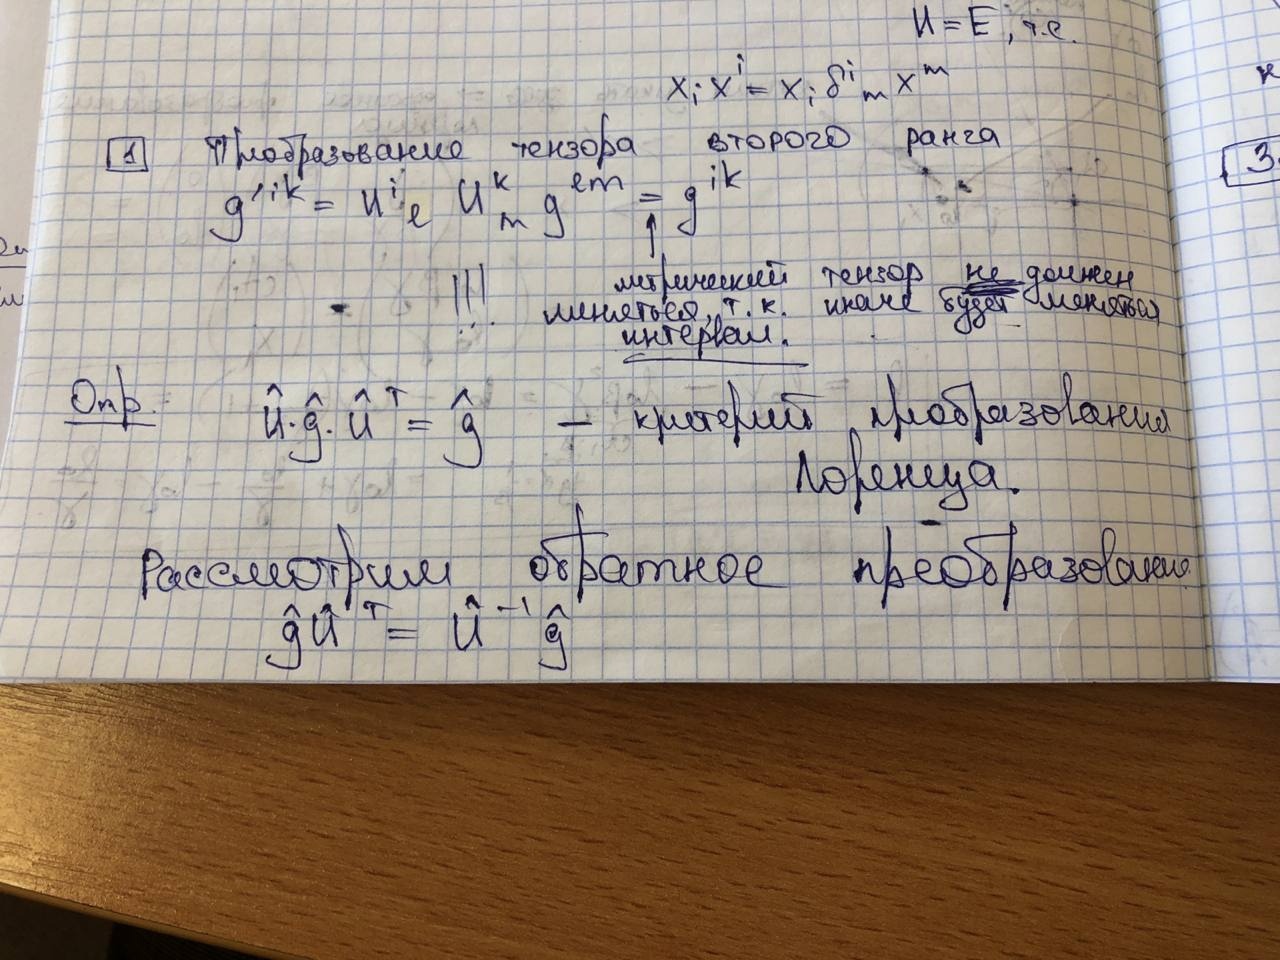 И = E, т.е.
x_i x^i = x_i δ^i_m x^m
1 Преобразование тензора второго ранга
g'^{ik} = И^i_e И^k_m g^{em} = g^{ik}
!!! метрический тензор не должен
меняться, т.к. иначе будет меняться
интервал.
Опр. Û·ĝ·Û^T = ĝ – критерий преобразования
Лоренца.
Рассмотрим обратное преобразование
ĝÛ^T = Û^{-1} ĝ
3.